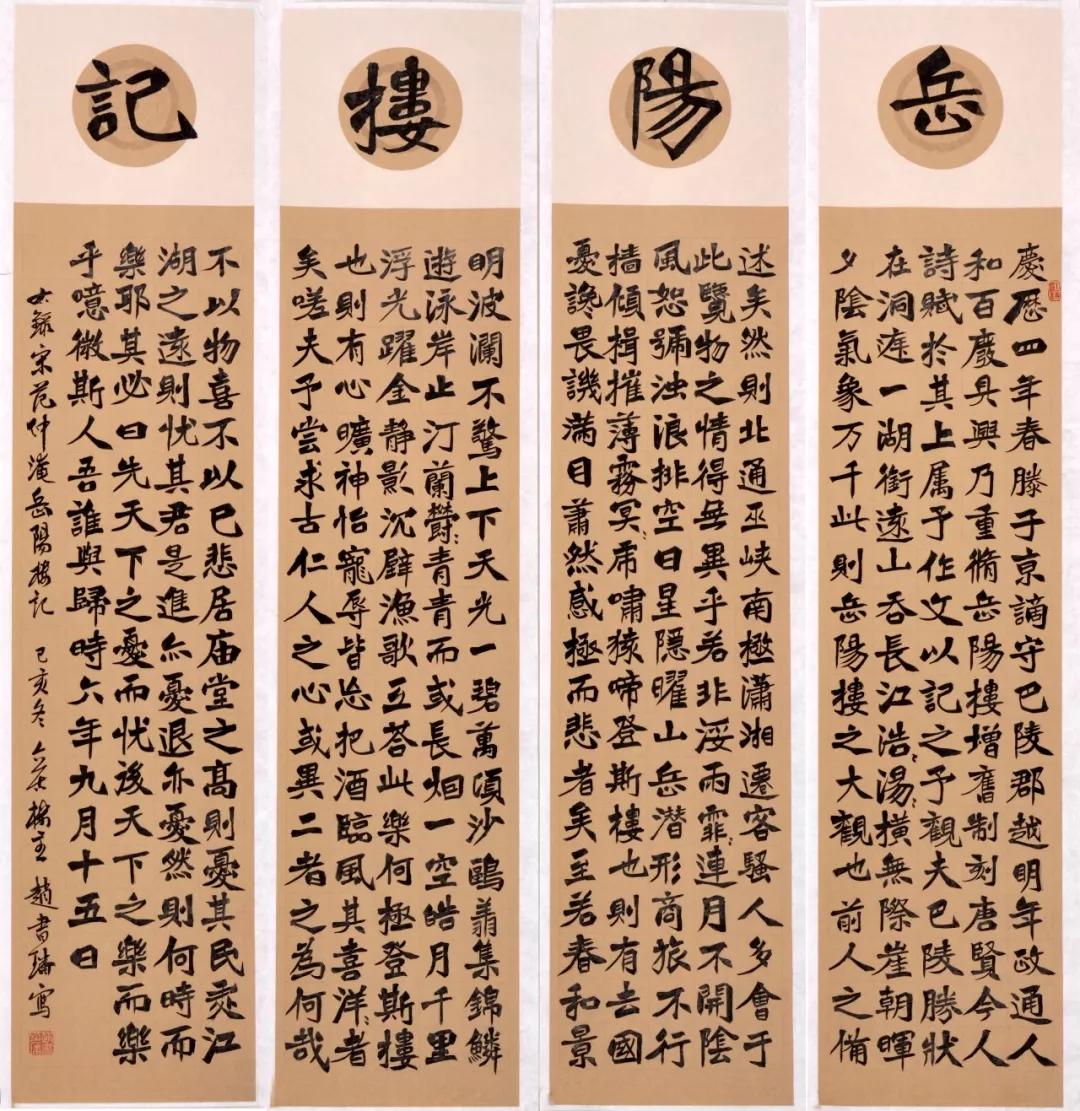 岳
慶歷四年春滕子京謫守巴陵郡越明年政通人
和百廢具興乃重脩岳陽樓增舊制刻唐賢今人
詩賦於其上属予作文以記之予觀夫巴陵勝狀
在洞庭一湖銜遠山吞長江浩〻湯〻橫無際崖朝暉
夕陰氣象万千此則岳陽樓之大觀也前人之俻
陽
述矣然則北通巫峽南極瀟湘遷客騷人多會于
此覽物之情得無異乎若非淫雨霏〻連月不開陰
風怒號浊浪排空日星隱曜山岳潜形商旅不行
檣傾揖摧薄霧冥〻虎嘯猿啼登斯樓也則有去國
憂讒畏譏滿目蕭然感極而悲者矣至若春和景
樓
明波瀾不驚上下天光一碧萬頃沙鷗翕集錦鱗
遊泳岸止汀蘭欝〻青青而或長烟一空皓月千里
浮光躍金静影沉璧漁歌互答此樂何極登斯樓
也則有心曠神怡寵辱皆忘把酒臨風其喜洋〻者
矣嗟夫予嘗求古仁人之心或異二者之為何哉
記
不以物喜不以己悲居庙堂之高則憂其民處江
湖之遠則忧其君是進亦憂退亦憂然則何時而
樂耶其必曰先天下之憂而忧後天下之樂而樂
乎噫微斯人吾誰與歸時六年九月十五日
右錄宋范仲淹岳陽樓記 己亥冬 樓主 趙書 寫